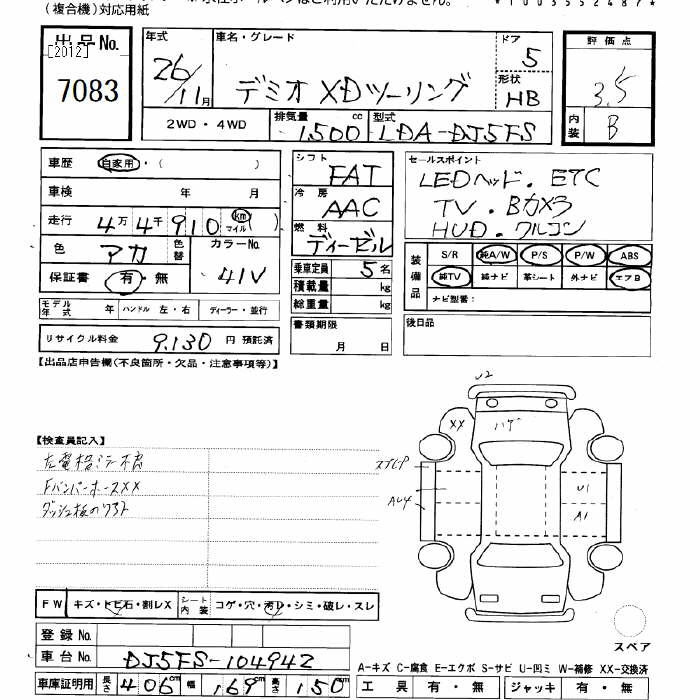 (複合機)対応用紙
*1003552487*
出品No.
[2012]
7083
年式
26/11月
車名・グレード
デミオ XDツーリング
ドア
5
形状
HB
評価点
3.5
内装
B
2WD・4WD
排気量
1,500cc
型式
LDA-DJ5FS
車歴
自家用・( )
車検 年 月
走行 4万4千910 km マイル( )
色 アカ
色替
カラーNo.
41V
保証書 有・無
モデル年式 年 ハンドル 左・右 ディーラー・並行
リサイクル料金 9,130 円 預託済
シフト
FAT
冷房
AAC
燃料
ディーゼル
乗車定員 5名
積載量 kg
総重量 kg
書類期限
月 日
セールスポイント
LEDヘッド・ETC
TV・Bカメラ
HUD・クルコン
装備品
S/R 純A/W P/S P/W ABS
純TV 純ナビ 革シート 外ナビ エアB
ナビ型番:
後日品
【出品店申告欄(不良箇所・欠品・注意事項等)】
【検査員記入】
FバンパーホースXX
U2
XX
ハゲ
U1
A1
FW キズ・トビ石・割レX
シート内装 コゲ・穴・汚レ・シミ・破レ・スレ
登録No.
車台No. DJ5FS-104942
車庫証明用 長さ 406cm 幅 169cm 高さ 150cm
スペア
A-キズ C-腐食 E-エクボ S-サビ U-凹ミ W-補修 XX-交換済
工具 有・無 ジャッキ 有・無